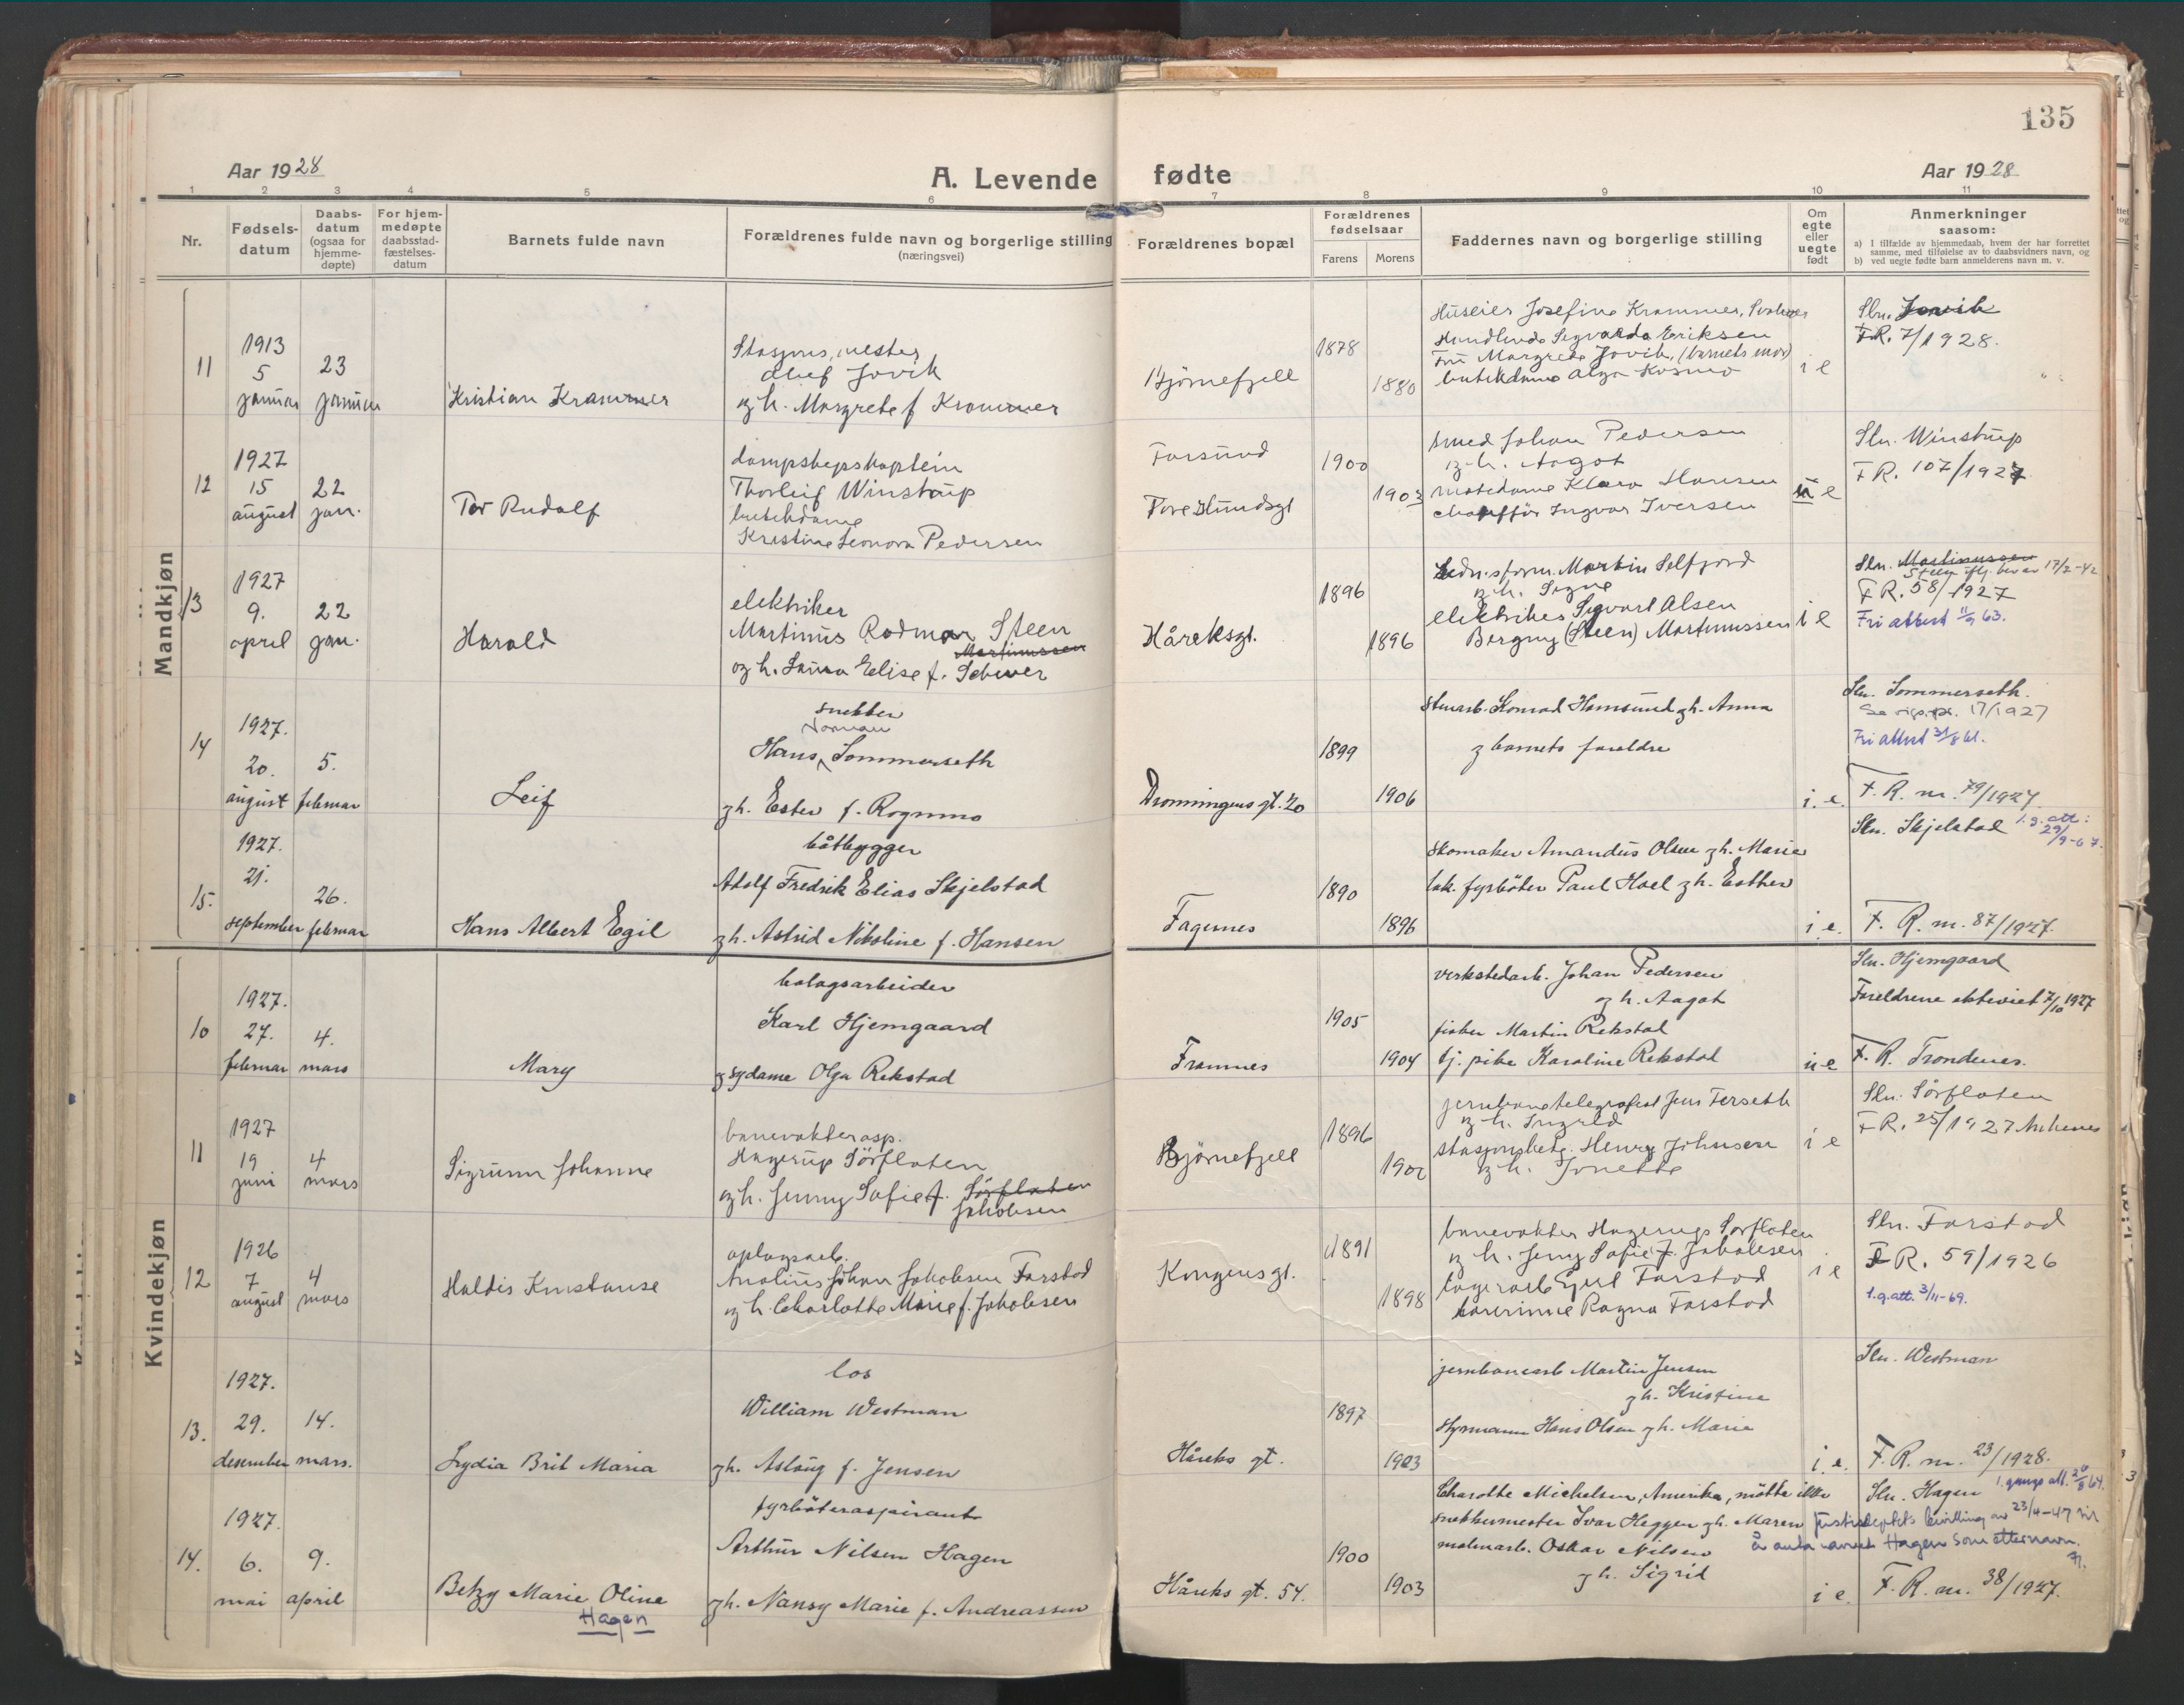 135
Aar 1928
A. Levende fødte
Aar 1928
1 2 3 4 5 6 7 8 9 10 11
Nr.
Fødselsdatum
Daabsdatum (ogsaa for hjemmedøpte)
For hjemmedøpte daabsstadfæstelsesdatum
Barnets fulde navn
Forældrenes fulde navn og borgerlige stilling (næringsvei)
Forældrenes bopæl
Forældrenes fødselsaar
Farens
Morens
Faddernes navn og borgerlige stilling
Om egte eller uegte født
Anmerkninger saasom:
a) I tilfælde av hjemmedaab, hvem der har forrettet samme, med tilføielse av to daabsvidners navn, og
b) ved uegte fødte barn anmelderens navn m. v.
Mandkjøn
11
1913
5
januar
23
januar
Kristian Krammer
Stasjonsmester
Oluf Jovik
og h. Margrete f Krammer
Bjørnefjell
1878
1880
Huseier Josefine Krammer, Svolvær
Handlende Sigvarda Eriksen
Fru Margrete Jovik, (barnets mor)
butikdame Olga Kosmo
i e
Sln. Jovik
F.R. 7/1928.
12
1927
15
august
22
jan.
Tor Rudolf
dampskipskaptein
Thorleif Winstrup
butikdame
Kristine Leonora Pedersen
Farsund
Tore Hundsgt
1900
1903
smed Johan Pedersen
og h. Aagot
motedame Klara Hansen
chauffør Ingvar Iversen
u e
Sln. Winstrup
F R. 107/1927
13
1927
9.
april
22
jan.
Harald
elektriker
Martinus Rodmar Steen
Martinussen
og h. Laura Elise f. Schiver
Håreksgt.
1896
1896
Ledn.sform. Martin Selfjord
og h. Signe
elektriker Sigvart Olsen
Borgny (Steen) Martinussen
i e
Sln. Martinussen
Steen iflg. bev. av 17/2-42
F R. 58/1927
Fri attest 11/9 63.
14
1927.
20.
august
5.
februar
Leif
snekker
Norman
Hans Sommerseth
og h. Ester f. Rognmo
Dronningens gt. 20
1899
1906
stenarb. Konrad Hamsund og h. Anna
og barnets foreldre
i. e.
Sln. Sommerseth.
17/1927
Fri attest 31/8 61.
F. R. nr. 79/1927.
15.
1927.
21.
september
26.
februar
Hans Albert Egil
båtbygger
Adolf Fredrik Elias Skjelstad
og h. Astrid Nikoline f. Hansen
Fagernes
1890
1896
skomaker Amandus Olsen og h. Marie
lok. fyrbøter Paul Hoel og h. Esther
i e.
Sln. Skjelstad 1. g. att: 29/9-67.
F. R. nr. 87/1927.
Kvindekjøn
10
1927.
27.
februar
4.
mars
Mary
bolagsarbeider
Karl Hjemgaard
og sydame Olga Rekstad
Framnes
1905
1904
verkstedarb. Johan Pedersen
og h. Aagot
fisker Martin Rekstad
tj. pike Karoline Rekstad
u e
Sln. Hjemgaard
Foreldrene ekteviet 7/10 1927
F. R. Trondenes.
11
1927
19
juni
4
mars
Sigrunn Johanne
banevokterasp.
Hagerup Sørfloten
og h. Jenny Sofie f. Sørfloten
Jakobsen
Bjørnefjell
1896
1900
jernbanetelegrafist Jens Forseth
og h. Ingrid
stasjonsbetj. Henry Johnsen
og h. Jonette
i e
Sln. Sørfloten
F R. 25/1927 Ankenes
12
1926
7
august
4
mars
Haldis Konstanse
oplagsarb.
Anolius Johan Jakobsen Farstad
og h. Charlotte Marie f. Jakobsen
Kongensgt.
1891
1898
banevokter Hagerup Sørfloten
og h. Jeny Sofie f. Jakobsen
lagerarb Egil Farstad
lærerinne Ragna Farstad
i e
Sln. Farstad
F R. 59/1926
1. g. att. 3/11-69.
13.
1927.
29.
desember
14.
mars.
Lydia Brit Maria
los
William Westman
og h. Aslaug f. Jensen
Håreks gt.
1897
1903
jernbanearb Martin Jensen
og h. Kristine
styrmann Hans Olsen og h. Marie
i. e.
Sln. Westman
F. R. nr. 23/1928.
14.
1927.
6.
mai
9.
april
Betzy Marie Oline
Hagen
fyrbøteraspirant
Arthur Nilsen Hagen
og h. Nansy Marie f. Andreassen
Håreks gt. 54.
1900
1903
Charotte Michelsen, Amerika, møtte ikke
snekkermester Ivar Heggen og h. Maren
malmarb. Oskar Nilsen
og h. Sigrid
i e.
Sln. Hagen 1. gangs att. 26/8 64.
Justisdeptets bevilling av 23/4-47 til
å anta navnet Hagen som etternavn.
F. R. nr. 38/1927.